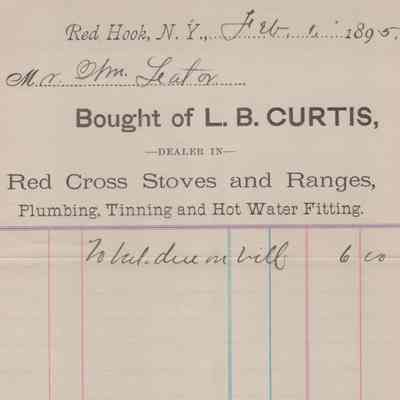 Red Hook, N. Y., Feb. 1. 1895.
Mr. Wm. Seator
Bought of L. B. CURTIS,
—DEALER IN—
Red Cross Stoves and Ranges,
Plumbing, Tinning and Hot Water Fitting.
To bal. due on bill 6 00